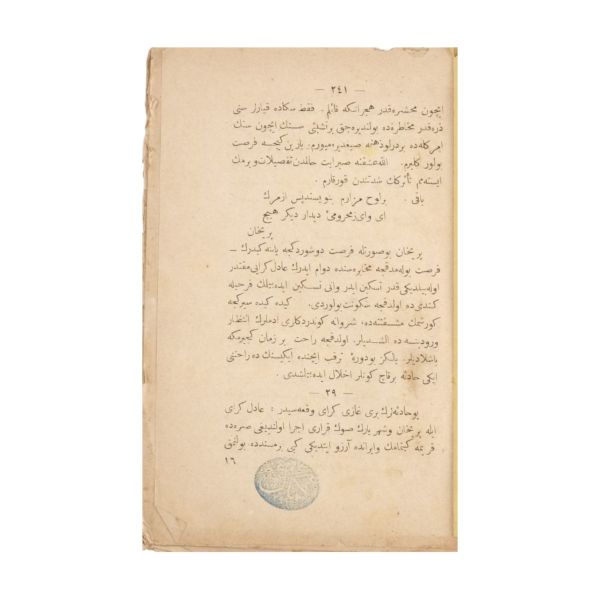 — ٢٤١ —
ایچون محشره‌قدر هجرانكه قائلم . فقط سكاده قیارلر سنی
ذره‌قدر مخاطره‌ده بولندیره‌جق برتشبثی سنك ایچون سنك
امركله‌ده بردرلو ذهنه صیغدیره‌میورم. یارین كیجه فرصت
بولور كلیرم . الله عشقنه صبر ایت حالمدن تفصیلات ویرمك
ایسته‌م تأثرك شدتندن قورقارم .
باقی . براوح مزارم بنویسندیس ازمرك
ای وای زمحرومی دیدار دیكر هیچ
پریخان
پریخان بوصورتله فرصت دوشوردكجه یاننه كیدرك –
فرصت بوله‌مدقجه مخابره‌سنده دوام ایدرك عادل كرایی مقتدر
اوله‌بیلدیكی قدر تسكین ایدر وانی تسكین ایده‌بیلمك فرحیله
كندی ده اولدقجه سكونت بولوردی. كیده كیده سیركجه
كورشمك مشقتنه‌ده، شروانه كوندردكلری ادملرك انتظار
ورودینه ده الشدیلر. اولدقجه راحت بر زمان كچیرمكه
باشلادیلر. یالكز بودورهٔ ترقب ایچنده ایكیسنك ده راحتنی
ایكی حادثه برقاچ كونلر اخلال ایده‌بیلشدی .
— ٢٩ —
بوحادثه‌لرك بری غازی كرای وقعه‌سیدر : عادل كرای
ایله پریخان وشهریارك صوك قراری اجرا اولندیغی صره‌ده
قریمه كیتمامك وایرانده آرزو ایتدیكی كبی برمسندده بولنمق
١٦